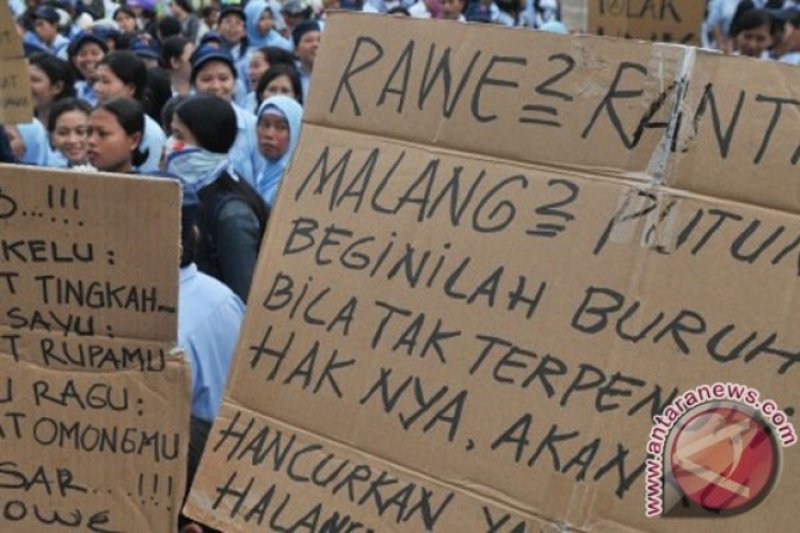 TOLAK
...!!!
KELU:
TINGKAH...
SAYU:
RUPAMU
RAGU:
OMONGMU
SAR...!!!
OWE
RAWE2 RANT
MALANG2 PUTUN
BEGINILAH BURUH
BILA TAK TERPEN
HAK NYA, AKAN
HANCURKAN YA
HALANG
www.antaranews.com